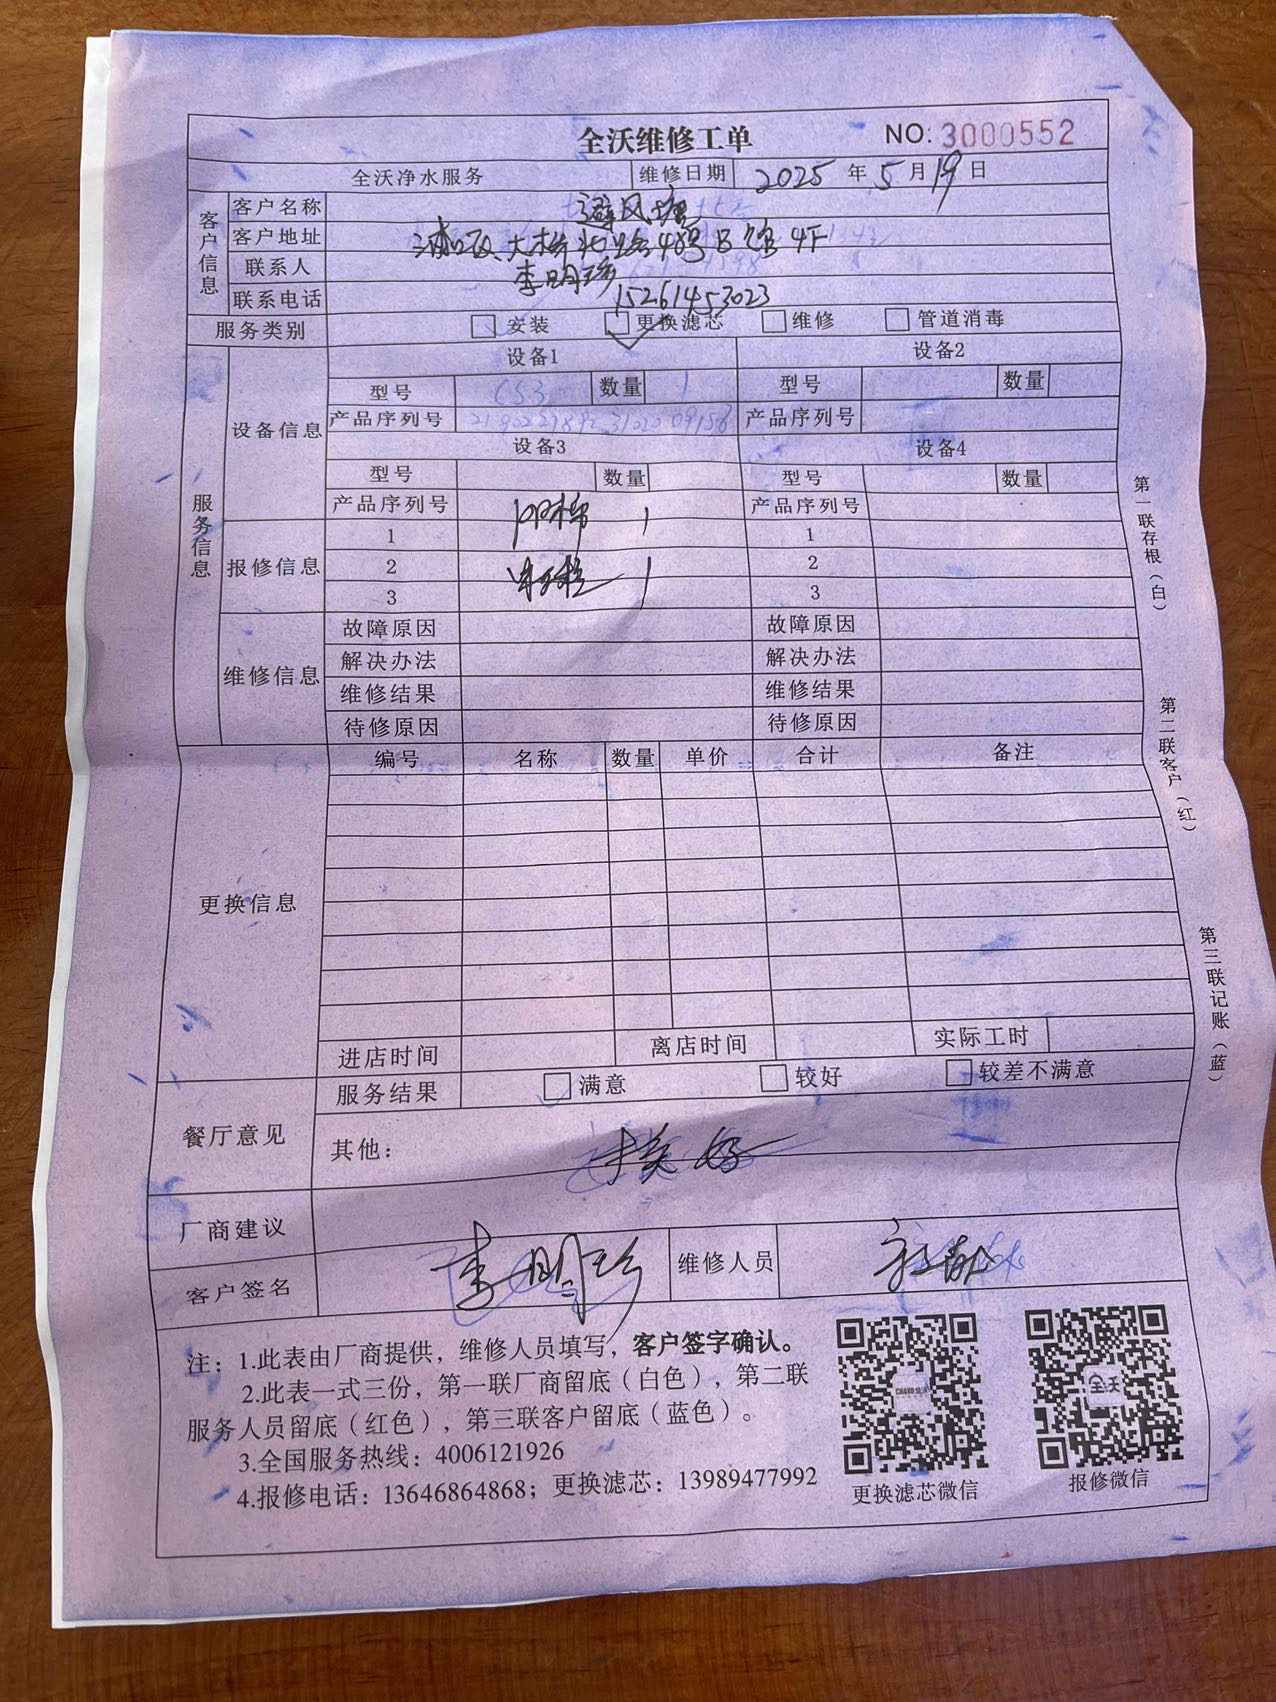 全沃维修工单 NO: 3000552
全沃净水服务 维修日期 2025 年 5 月 19 日
客户信息
客户名称 避风塘
客户地址 浦口区、大桥北路48号B馆4F
联系人 李明珍
联系电话 15261453023
服务类别 安装 更换滤芯 维修 管道消毒
服务信息
设备信息
设备1 设备2
型号 CS3 数量 1 型号 数量
产品序列号 产品序列号
设备3 设备4
型号 数量 型号 数量
产品序列号 PP棉 1 产品序列号
报修信息
1 1
2 1 2
3 3
维修信息
故障原因 故障原因
解决办法 解决办法
维修结果 维修结果
待修原因 待修原因
更换信息
编号 名称 数量 单价 合计 备注
进店时间 离店时间 实际工时
餐厅意见
服务结果 满意 较好 较差不满意
其他: 换好
厂商建议
客户签名 李明珍 维修人员
注: 1.此表由厂商提供，维修人员填写，客户签字确认。
2.此表一式三份，第一联厂商留底（白色），第二联
服务人员留底（红色），第三联客户留底（蓝色）。
3.全国服务热线：4006121926
4.报修电话：13646864868；更换滤芯：13989477992
更换滤芯微信 报修微信
全沃
第一联存根（白）
第二联客户（红）
第三联记账（蓝）